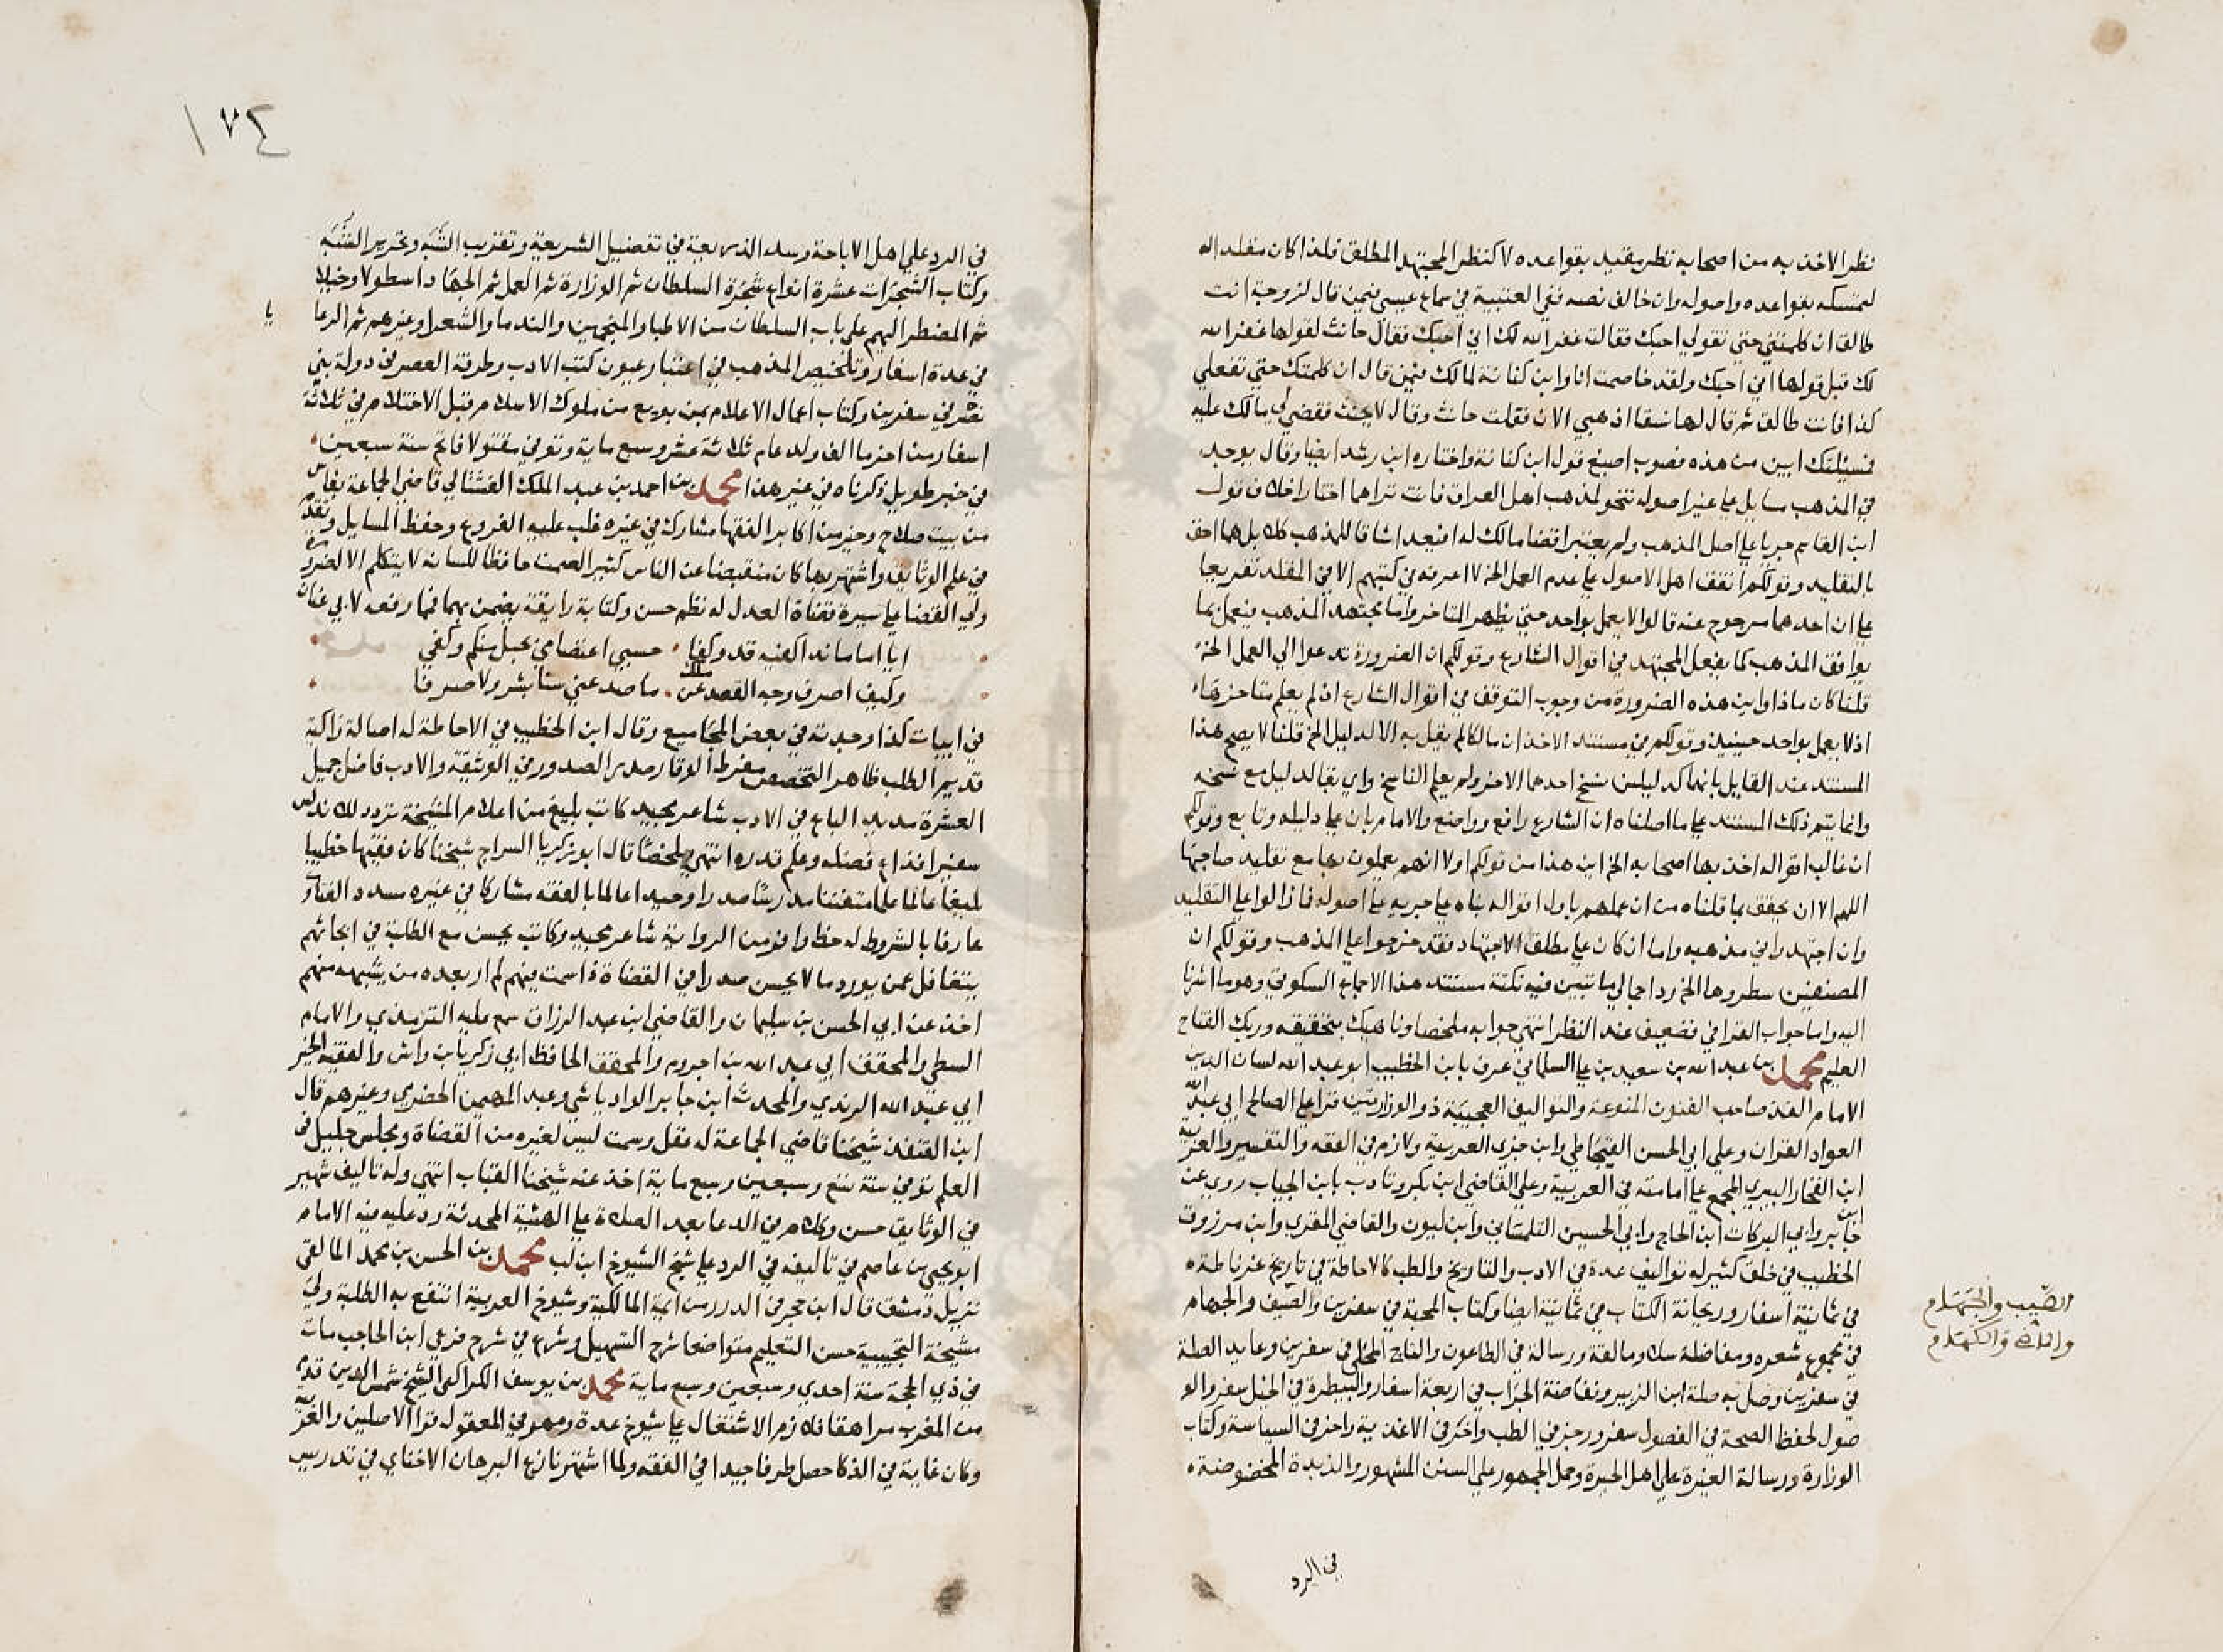 نظر الاخذ به من اصحابه نظر مقيد بقواعده لا كنظر المجتهد المطلق فلذا كان مقلدا له
لتمسكه بقواعده واصوله وان خالف نصه ففي العتبية في سماع عيسى فيمن قال لزوجة انت
طالق ان كلمتني حتى تقولي احبك فقالت غفر الله لك اني احبك فقال حانث لقولها غفر الله
لك قبل قولها اني احبك ولقد خاصمت انا وابن كنانة لمالك فيمن قال ان كلمتك حتى تفعلي
كذا فانت طالق ثم قال لها نسقا اذهبي الان فقلت حانث وقال لا يحنث فقضى لي مالك عليه
فمسئلتك ابين من هذه فصوب اصبغ قول ابن كنانة واختاره ابن رشد ايضا وقال يوجد
في المذهب مسايل على غير اصوله تنحو لمذهب اهل العراق فانت تراهما اختارا خلاف قول
ابن القاسم جريا على اصل المذهب ولم يعتبر اقضا مالك له افيعد اشاقا للمذهب كلا بل هما احق
بالتقليد وقولكم اتفق اهل الاصول على عدم العمل الخ لا اعرفه في كتبهم الا في المقلد تفريعا
على ان احدهما مرجوح عنه قالوا لا يعمل بواحد حتى يظهر التاخر واما مجتهد المذهب فيعمل بما
يوافق المذهب كما يفعل المجتهد في اقوال الشارع وقولكم ان الضرورة تدعوا الي العمل الخ
قلنا كان ماذا واين هذه الضرورة من وجوب التوقف في اقوال الشارع ان لم يعلم متاخرها
اذ لا يعمل بواحد حينيذ وقولكم في مستند الاخذ ان مالكا لم يقل به الا لدليل الخ قلنا لا يصح هذا
المستند عند القايل بانهما كدليلين نسخ احدهما الاخر ولم يعلم الناسخ واي بقا لدليل مع نسخه
وانما يتم ذلك المستند على ما اصلناه ان الشارع رافع وواضع والامام بان على دليله وتابع وقولكم
ان غالب اقواله اخذ بها اصحابه الخ اين هذا من قولكم اولا انهم يعملون بها مع تقليد صاحبها
اللهم الا ان يحقق بما قلناه من ان عملهم باول اقواله بناه على جريه على اصوله فما زالوا على التقليد
وان اجتهد رافي مذهبه واما ان كان على مطلق الاجتهاد فقد خرجوا على المذهب وقولكم ان
المصنفين سطروها الخ رد اجمالي ما تبين فيه نكتة مستند هذا الاجماع السكوتي وهو ما اشرنا
اليه واما جواب القرافي فضعيف عند النظر انتهى جوابه ملخصا وناهيك بتحقيقه وربك الفتاح
العليم محمد بن عبد الله بن سعيد بن علي السلماني عرف بابن الخطيب ابو عبد الله لسان الدين
الامام الفذ صاحب الفنون المنوعة والتواليف العجيبة ذو الوزارتين قرا على الصالح ابي عبد الله
العواد القران وعلى ابي الحسن القيجاطي وابن جزي العربية ولازم في الفقه والتفسير والعربية
ابن الفخار البيري المجمع على امامته في العربية وعلى القاضي ابن بكر وتادب بابن الجياب روى عن
ابن جابر وابي البركات ابن الحاج وابي الحسين التلمساني وابن ليون والقاضي المقري وابن مرزوق
الخطيب في خلق كثير له تواليف عدة في الادب والتاريخ والطب كالاحاطة في تاريخ غرناطة
في ثمانية اسفار وريحانة الكتاب في ثمانية ايضا وكتاب المحبة في سفرين والصيف والجهام
في مجموع شعره ومفاضلة سلا ومالقة ورسالة في الطاعون والتاج المحلى في سفرين وعايد الصلة
في سفرين وصل به صلة ابن الزبير ونفاضة الجراب في اربعة اسفار والبيطرة في الخيل سفر والو
صول لحفظ الصحة في الفصول سفر ورجز في الطب واخر في الاغذية واخر في السياسة وكتاب
الوزارة ورسالة الغيرة على اهل الحيرة وحمل الجمهور على السنن المشهور والزبدة الممخوضة
الصيب والجهام
والماضي والكهام
في الرد
١٧٤
في الرد على اهل الاباحة وسد الذريعة في تفضيل الشريعة وتقريب الشبه وتحرير الشبه
وكتاب الشجرات عشرة انواع شجرة السلطان ثم الوزارة ثم العمل ثم الجهاد اسطولا وخيلا
ثم المضطر اليهم على باب السلطان من الاطبا والمنجمين والندما والشعرا وغيرهم ثم الرعا
يا
في عدة اسفار وتلخيص المذهب في اختيار عيون كتب الادب وطرفة العصر في دولة بني
نصر في سفرين وكتاب اعمال الاعلام بمن بويع من ملوك الاسلام قبل الاحتلام في ثلاثة
اسفار من اخر ما الف ولد عام ثلاثة عشر وسبع ماية وتوفي مقتولا فاتح سنة ست وسبعين
في خبر طويل ذكرناه في غير هذا محمد بن احمد بن عبد الملك الفشتالي قاضي الجماعة بفاس
من بيت صلاح وخير من اكابر الفقها مشارك في غيره غلب عليه الفروع وحفظ المسايل وتقدم
في علم الوثايق واشتهر بها كان منقبضا عن الناس كثير الصمت حافظا للسانه لا يتكلم الا لضرورة
ولي القضا على سيرة قضاة العدل له نظم حسن وكتابة رايقة يضمن بهما فمما رفعه لابي عنان
ايا اماما ندا كفيه قد وكفا . حسبي اعتصامي بحبل منكم وكفى
وكيف اصرف وجه القصد عن ملك . ما صد عني سنا بشر ولا صرفا
في ابيات كذا وجدته في بعض المجاميع وقال ابن الخطيب في الاحاطة له اصالة زاكية
قديم الطلب ظاهر التخصص مفرط الوقار صدر الصدور في الوثيقة والادب فاضل جميل
العشرة مديد الباع في الادب شاعر مجيد كاتب بليغ من اعلام المشيخة تردد للاندلس
سفيرا فذاع فضله وعلم قدره انتهى ملخصا قال ابو زكريا السراج شيخنا كان فقيها خطيبا
بليغا عالما علما متفننا مدرسا صدرا وحيدا عالما بالفقه مشاركا في غيره مسدد الفتاوى
عارفا بالشروط له حظ وافر من الرواية شاعر مجيد وكاتب يحسن مع الطلبة في ابحاثهم
يتغافل عمن يورد ما لا يحسن صدرا في القضاة ذا سمت فيهم لم ار بعده من يشبهه منهم
اخذ عن ابي الحسن بن سليمان والقاضي ابن عبد الرزاق سمع عليه الترمذي والامام
السطي والمحقق ابي عبد الله بن اجروم والمحقق الحافظ ابي زكريا بن واش والفقيه الخير
ابي عبد الله الرندي والمحدث ابن جابر الوادياشي وعبد المهيمن الحضرمي وغيرهم قال
ابن القنفذ شيخنا قاضي الجماعة له عقل وسمت ليس لغيره من القضاة ومجلس جليل في
العلم توفي سنة تسع وسبعين وسبع ماية اخذ عنه شيخنا القباب انتهى وله تاليف شهير
في الوثايق حسن وكلام في الدعا بعد الصلاة على الهيئة المحدثة رد عليه فيه الامام
ابو يحيى بن عاصم في تاليفه في الرد على شيخ الشيوخ ابن لب محمد بن الحسن بن محمد المالقي
نزيل دمشق قال ابن حجر في الدرر من ايمة المالكية وشيوخ العربية انتفع به الطلبة ولي
مشيخة النجيبية حسن التعليم متواضعا شرح التسهيل وشرع في شرح فرعي ابن الحاجب مات
في ذي الحجة سنة احدى وسبعين وسبع ماية محمد بن يوسف الكراكي الشيخ شمس الدين قدم
من المغرب مراهقا فلازم الاشتغال على شيوخ عدة ومهر في المعقول قرا الاصلين والعربية
وكان غاية في الذكا حصل طرفا جيدا في الفقه ولما اشتهر نازع البرهان الاخناي في تدريس